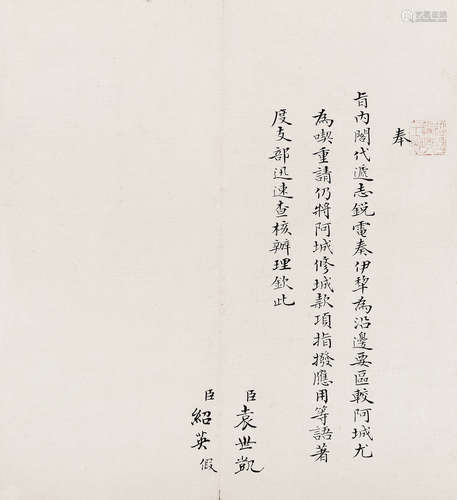 奉
旨內閣代遞志銳電奏伊犂為沿邊要區較阿城尤
為喫重請仍將阿城修城款項指撥應用等語著
度支部迅速查核辦理欽此
臣袁世凱
臣紹英假